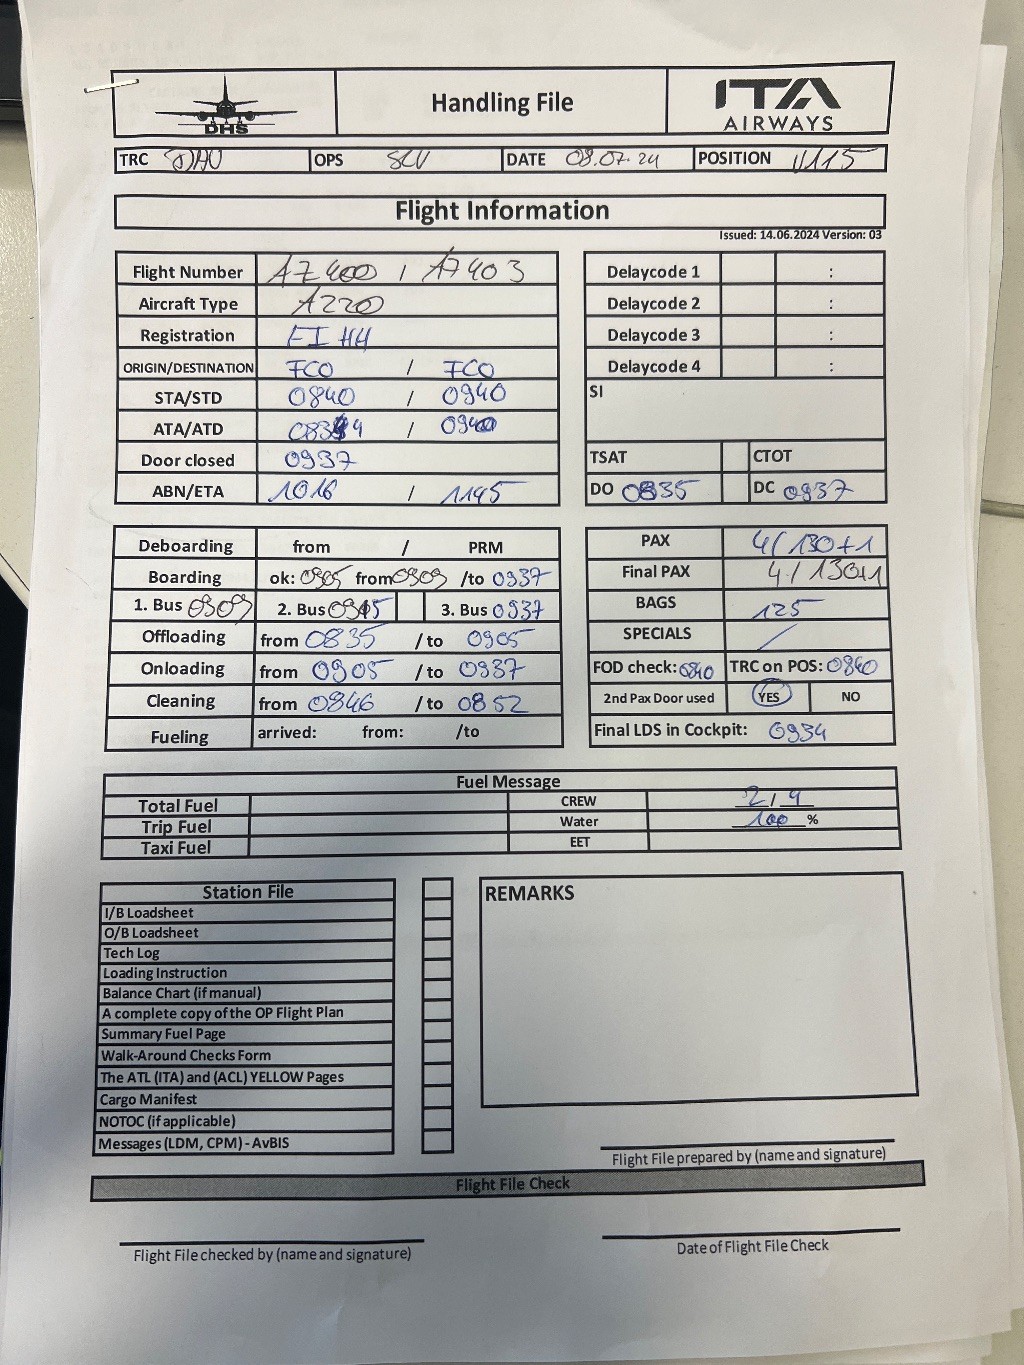 DHS
Handling File
ITA
AIRWAYS
TRC DAU OPS SCU DATE 08.07.24 POSITION V115
Flight Information
Issued: 14.06.2024 Version: 03
Flight Number AZ400 / AZ403
Aircraft Type A220
Registration EI HH
ORIGIN/DESTINATION FCO / FCO
STA/STD 0840 / 0940
ATA/ATD 0834 / 0940
Door closed 0937
ABN/ETA 1016 / 1145
Delaycode 1 :
Delaycode 2 :
Delaycode 3 :
Delaycode 4 :
SI
TSAT CTOT
DO 0835 DC 0937
Deboarding from / PRM
Boarding ok: 0905 from 0909 /to 0937
1. Bus 0909 2. Bus 0915 3. Bus 0937
Offloading from 0835 / to 0905
Onloading from 0905 / to 0937
Cleaning from 0846 / to 0852
Fueling arrived: from: /to
PAX 4/130+1
Final PAX 4/130+1
BAGS 125
SPECIALS /
FOD check: 0840 TRC on POS: 0840
2nd Pax Door used YES NO
Final LDS in Cockpit: 0934
Fuel Message
Total Fuel CREW 2/4
Trip Fuel Water 100 %
Taxi Fuel EET
Station File
I/B Loadsheet
O/B Loadsheet
Tech Log
Loading Instruction
Balance Chart (if manual)
A complete copy of the OP Flight Plan
Summary Fuel Page
Walk-Around Checks Form
The ATL (ITA) and (ACL) YELLOW Pages
Cargo Manifest
NOTOC (if applicable)
Messages (LDM, CPM) - AvBIS
REMARKS
Flight File prepared by (name and signature)
Flight File Check
Flight File checked by (name and signature)
Date of Flight File Check